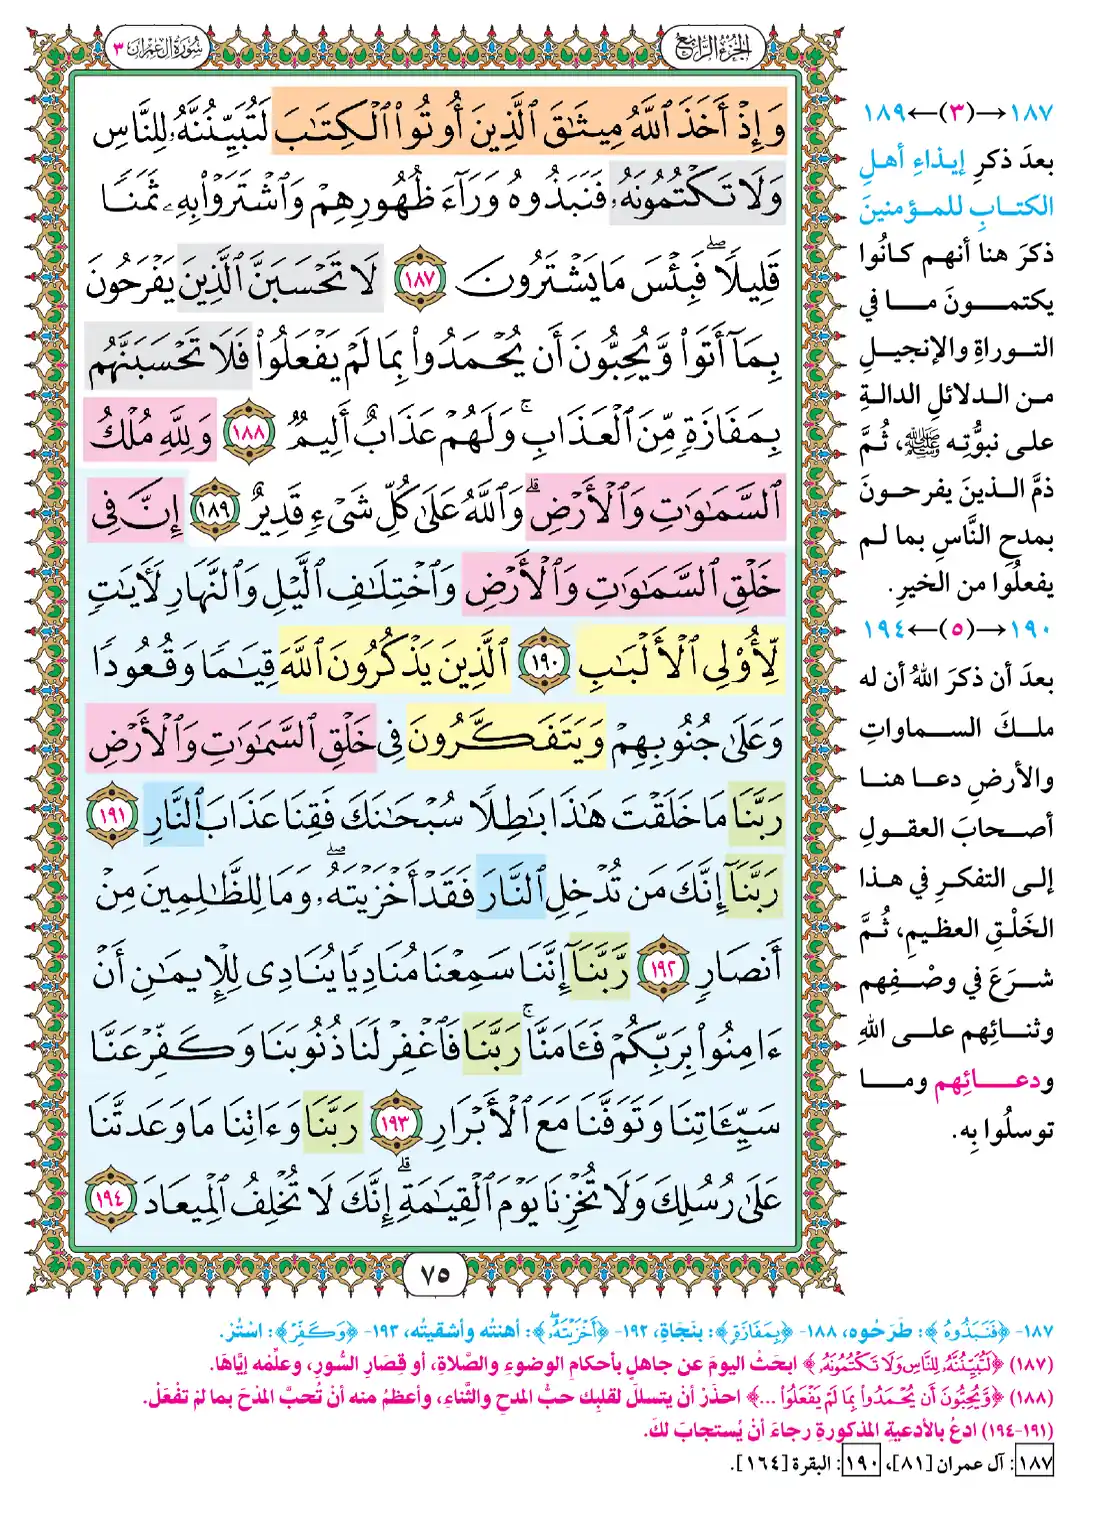 الجزء الرابع
سورة آل عمران ٣
وَإِذْ أَخَذَ ٱللَّهُ مِيثَـٰقَ ٱلَّذِينَ أُوتُوا۟ ٱلْكِتَـٰبَ لَتُبَيِّنُنَّهُۥ لِلنَّاسِ
وَلَا تَكْتُمُونَهُۥ فَنَبَذُوهُ وَرَآءَ ظُهُورِهِمْ وَٱشْتَرَوْا۟ بِهِۦ ثَمَنًا
قَلِيلًا ۖ فَبِئْسَ مَا يَشْتَرُونَ ١٨٧ لَا تَحْسَبَنَّ ٱلَّذِينَ يَفْرَحُونَ
بِمَآ أَتَوا۟ وَّيُحِبُّونَ أَن يُحْمَدُوا۟ بِمَا لَمْ يَفْعَلُوا۟ فَلَا تَحْسَبَنَّهُم
بِمَفَازَةٍ مِّنَ ٱلْعَذَابِ ۖ وَلَهُمْ عَذَابٌ أَلِيمٌ ١٨٨ وَلِلَّهِ مُلْكُ
ٱلسَّمَـٰوَٰتِ وَٱلْأَرْضِ ۗ وَٱللَّهُ عَلَىٰ كُلِّ شَىْءٍ قَدِيرٌ ١٨٩ إِنَّ فِى
خَلْقِ ٱلسَّمَـٰوَٰتِ وَٱلْأَرْضِ وَٱخْتِلَـٰفِ ٱلَّيْلِ وَٱلنَّهَارِ لَـَٔايَـٰتٍ
لِّأُو۟لِى ٱلْأَلْبَـٰبِ ١٩٠ ٱلَّذِينَ يَذْكُرُونَ ٱللَّهَ قِيَـٰمًا وَقُعُودًا
وَعَلَىٰ جُنُوبِهِمْ وَيَتَفَكَّرُونَ فِى خَلْقِ ٱلسَّمَـٰوَٰتِ وَٱلْأَرْضِ
رَبَّنَا مَا خَلَقْتَ هَـٰذَا بَـٰطِلًا سُبْحَـٰنَكَ فَقِنَا عَذَابَ ٱلنَّارِ ١٩١
رَبَّنَآ إِنَّكَ مَن تُدْخِلِ ٱلنَّارَ فَقَدْ أَخْزَيْتَهُۥ ۖ وَمَا لِلظَّـٰلِمِينَ مِنْ
أَنصَارٍ ١٩٢ رَّبَّنَآ إِنَّنَا سَمِعْنَا مُنَادِيًا يُنَادِى لِلْإِيمَـٰنِ أَنْ
ءَامِنُوا۟ بِرَبِّكُمْ فَـَٔامَنَّا ۚ رَبَّنَا فَٱغْفِرْ لَنَا ذُنُوبَنَا وَكَفِّرْ عَنَّا
سَيِّـَٔاتِنَا وَتَوَفَّنَا مَعَ ٱلْأَبْرَارِ ١٩٣ رَبَّنَا وَءَاتِنَا مَا وَعَدتَّنَا
عَلَىٰ رُسُلِكَ وَلَا تُخْزِنَا يَوْمَ ٱلْقِيَـٰمَةِ ۗ إِنَّكَ لَا تُخْلِفُ ٱلْمِيعَادَ ١٩٤
٧٥
١٨٧→(٣)←١٨٩
بعدَ ذكرِ إيذاءِ أهلِ
الكتابِ للمؤمنينَ
ذكرَ هنا أنهم كانُوا
يكتمونَ ما في
التوراةِ والإنجيلِ
من الدلائلِ الدالةِ
على نبوَّتِه ﷺ، ثُمَّ
ذمَّ الذينَ يفرحونَ
بمدحِ النَّاسِ بما لم
يفعلُوا من الخيرِ.
١٩٠→(٥)←١٩٤
بعدَ أن ذكرَ اللهُ أن له
ملكَ السماواتِ
والأرضِ دعا هنا
أصحابَ العقولِ
إلى التفكرِ في هذا
الخَلْقِ العظيمِ، ثُمَّ
شرَعَ في وصْفِهم
وثنائِهم على اللهِ
ودعائِهم وما
توسلُوا بِه.
١٨٧- ﴿فَنَبَذُوهُ﴾: طَرَحُوه، ١٨٨- ﴿بِمَفَازَةٍ﴾: بنَجَاةٍ، ١٩٢- ﴿أَخْزَيْتَهُۥ﴾: أهنتُه وأشقيتُه، ١٩٣- ﴿وَكَفِّرْ﴾: اسْتُرْ.
(١٨٧) ﴿لَتُبَيِّنُنَّهُۥ لِلنَّاسِ وَلَا تَكْتُمُونَهُۥ﴾ ابحَثْ اليومَ عن جاهلٍ بأحكامِ الوضوءِ والصَّلاةِ، أو قِصَارِ السُّورِ، وعلِّمْه إيَّاهَا.
(١٨٨) ﴿وَّيُحِبُّونَ أَن يُحْمَدُوا۟ بِمَا لَمْ يَفْعَلُوا۟ ...﴾ احذَرْ أنْ يتسللَ لقلبِكَ حبُّ المدحِ والثَّناءِ، وأعظمُ منه أنْ تُحبَّ المدْحَ بما لمْ تفْعَلْ.
(١٩١-١٩٤) ادعُ بالأدعيةِ المذكورةِ رجاءَ أنْ يُستجابَ لكَ.
١٨٧: آل عمران [٨١]، ١٩٠: البقرة [١٦٤].